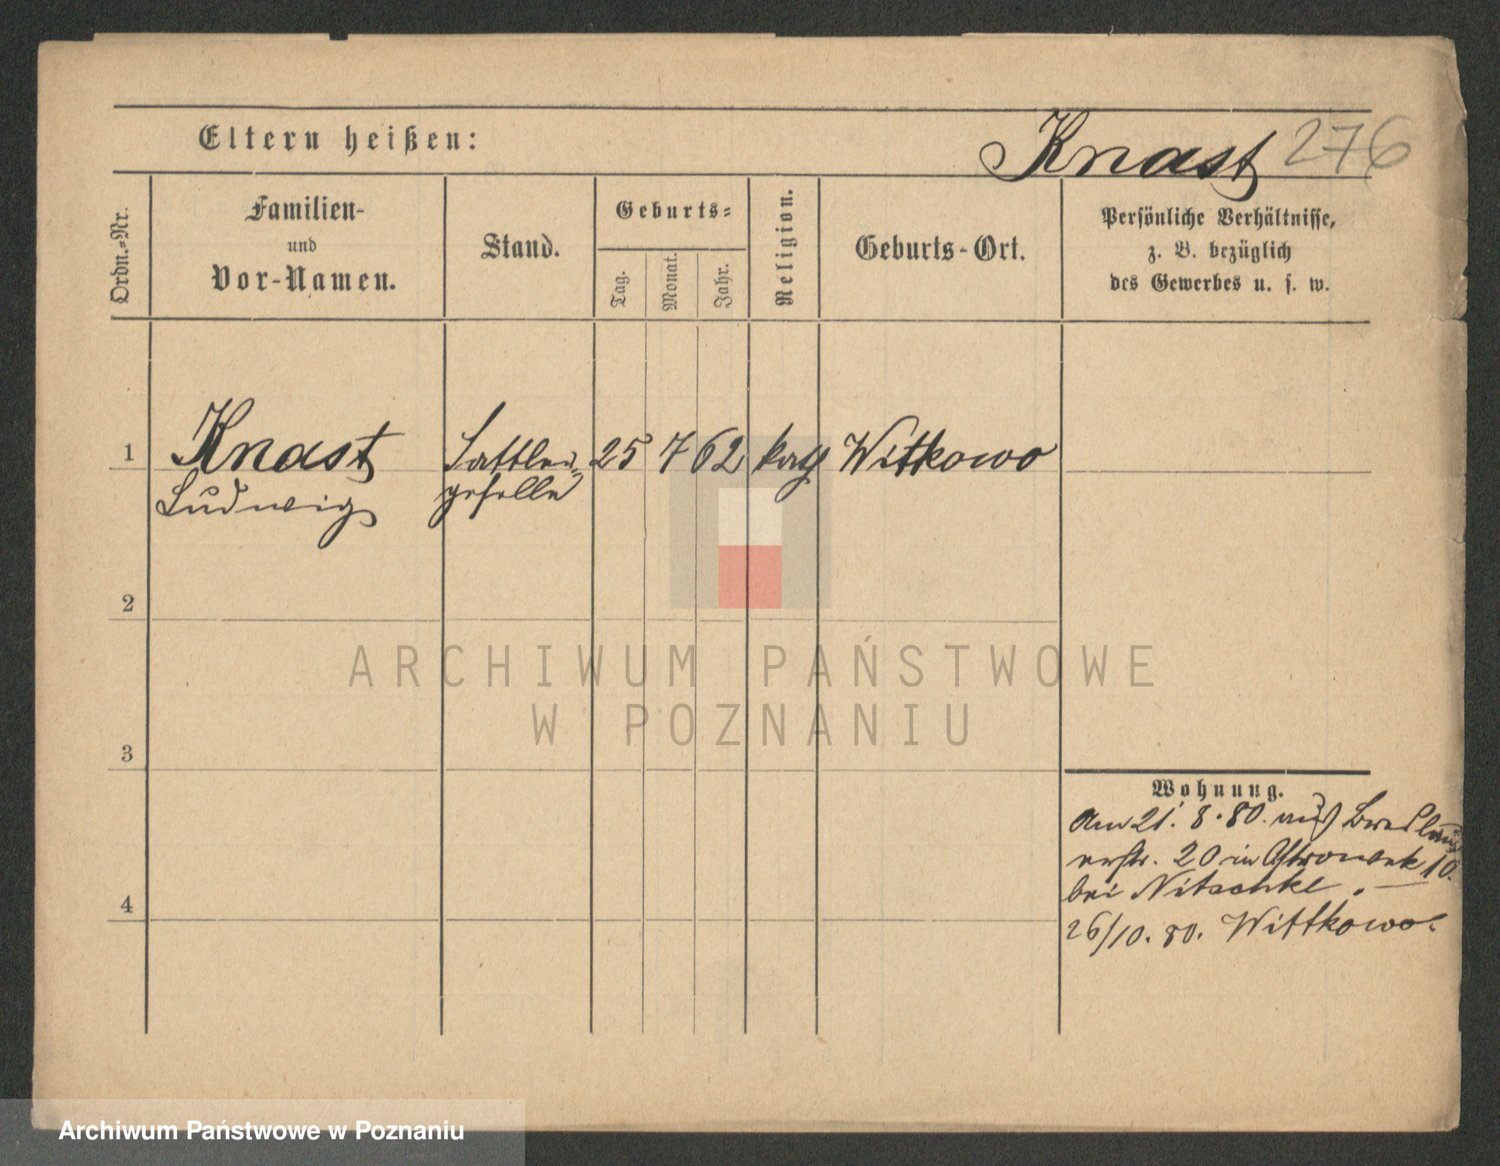 Eltern heißen:
Knast 276
Ordn.-Nr.
Familien-
und
Vor-Namen.
Stand.
Geburts-
Tag.
Monat.
Jahr.
Religion.
Geburts-Ort.
Persönliche Verhältnisse,
z. B. bezüglich
des Gewerbes u. s. w.
1
Knast
Ludwig
Sattler-
geselle
25
7
62
kath
Witkowo
2
3
4
ARCHIWUM PAŃSTWOWE
W POZNANIU
Wohnung.
Am 21. 8. 80. Breslau
erstr. 20 in Ostrowek 10.
bei Nitschke. —
26/10. 80. Wittkowo.
Archiwum Państwowe w Poznaniu